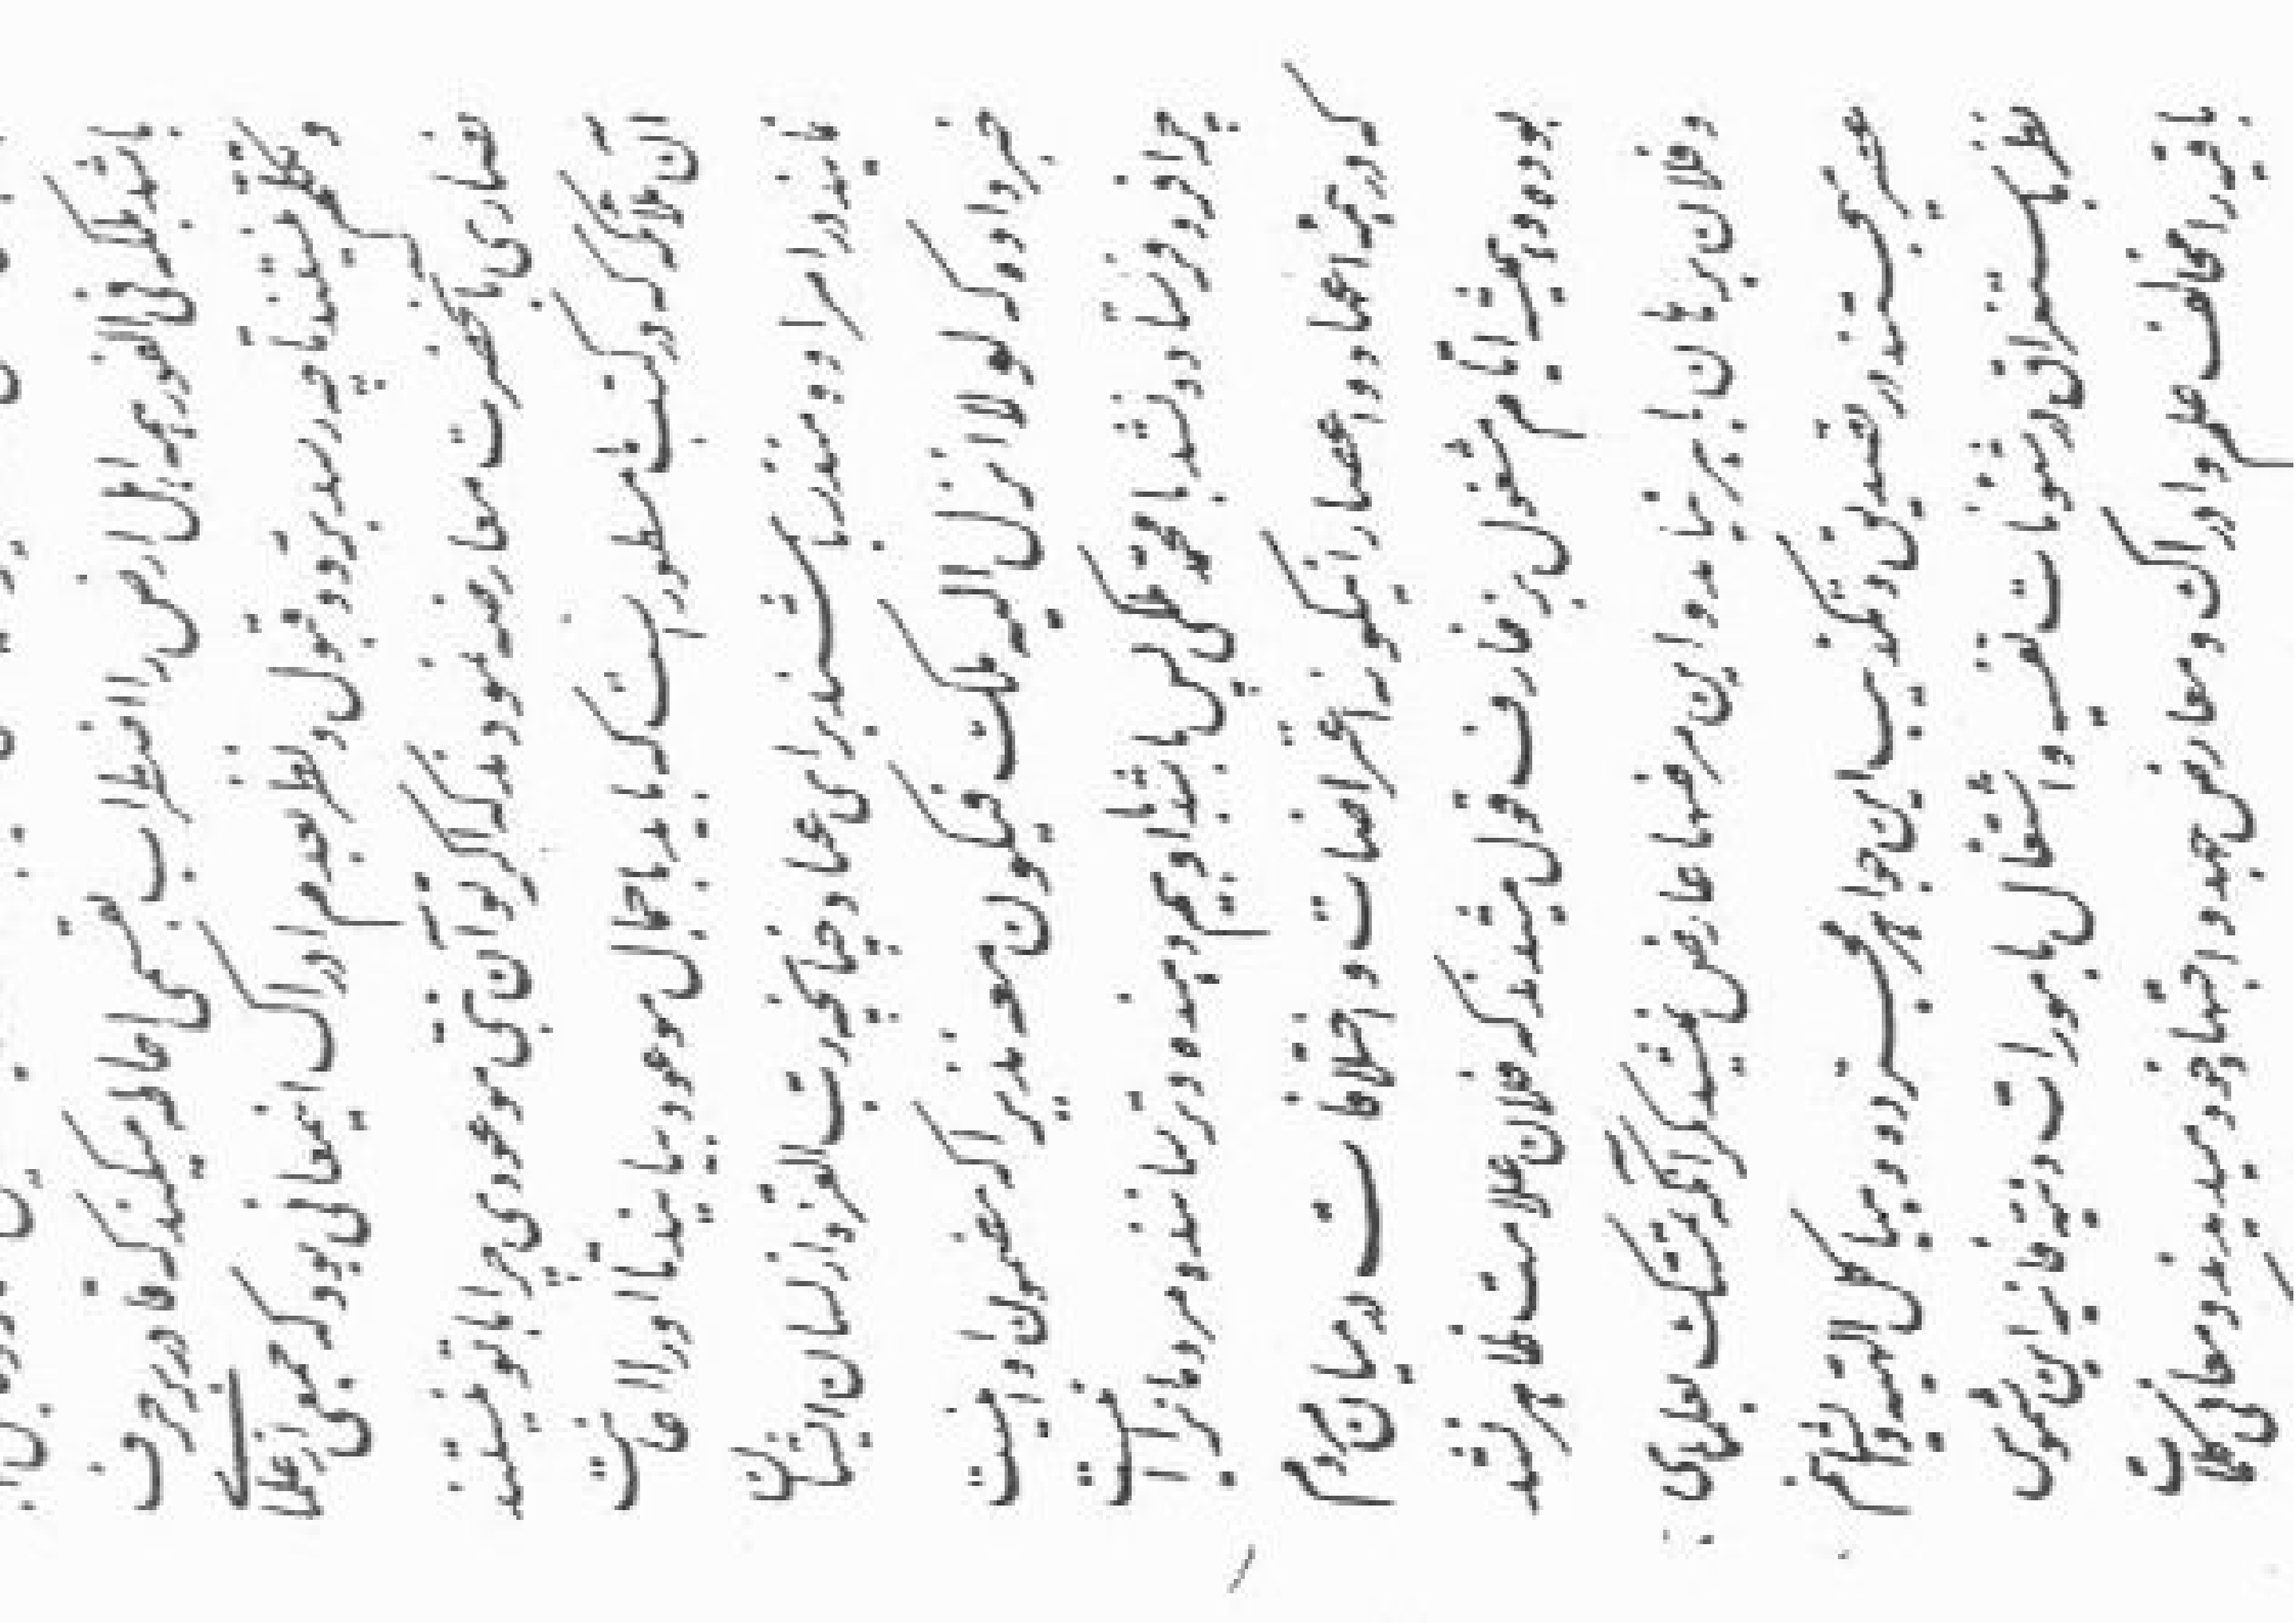 باشد بلکه فی الفور همه اهل ارض را اضطراب بقسمی احاطه میکند که قادر بر حرف
و تکلّم نیستند تا چه رسد بردّ و قبول و نظر بعدم ادراک این معانی بود که جمعی از علمای
نصاری بانحضرت معارضه نمودند که اگر تو آن نبی موعودی چرا با تو نیستند
ان ملائکه که در کتب ما مسطور است که باید با جمال موعود بیایند تا او را اعانت
نمایند در امر او و منذر باشند برای عباد و چنانچه رب العزّه از لسان ایشان
خبر داده که لولا انزل الیه ملک فیکون معه نذیرا که مضمون او اینست
چرا فرو فرستاده نشد با محمّد ملکی پس باشد با او بیم دهنده و ترساننده مردمانرا اینست
که در همه اعهاد و اعصار اینگونه اعتراضات و اختلافات در میان مردم
بوده و همیشه ایّام مشغول بزخارف قول میشدند که فلان علامت ظاهر نشد
و فلان برهان باهر نیامد و این مرضها عارض نمیشد مگر آنکه تمسّک بعلمای
عصر میجستند در تصدیق و تکذیب این جواهر مجرّده و هیاکل الهیّه و ایشان هم
نظر باستغراق در شئونات نفسیّه و اشتغال بامورات دنیّه فانیه این شموس
باقیه را مخالف علم و ادراک و معارض جهد و اجتهاد خود میدیدند و معانی کلمات